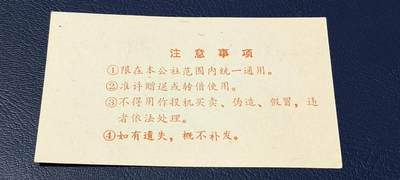 注意事项
①限在本公社范围内统一通用。
②准许赠送或转借使用。
③不得用作投机买卖、伪造、假冒，违
者依法处理。
④如有遗失，概不补发。